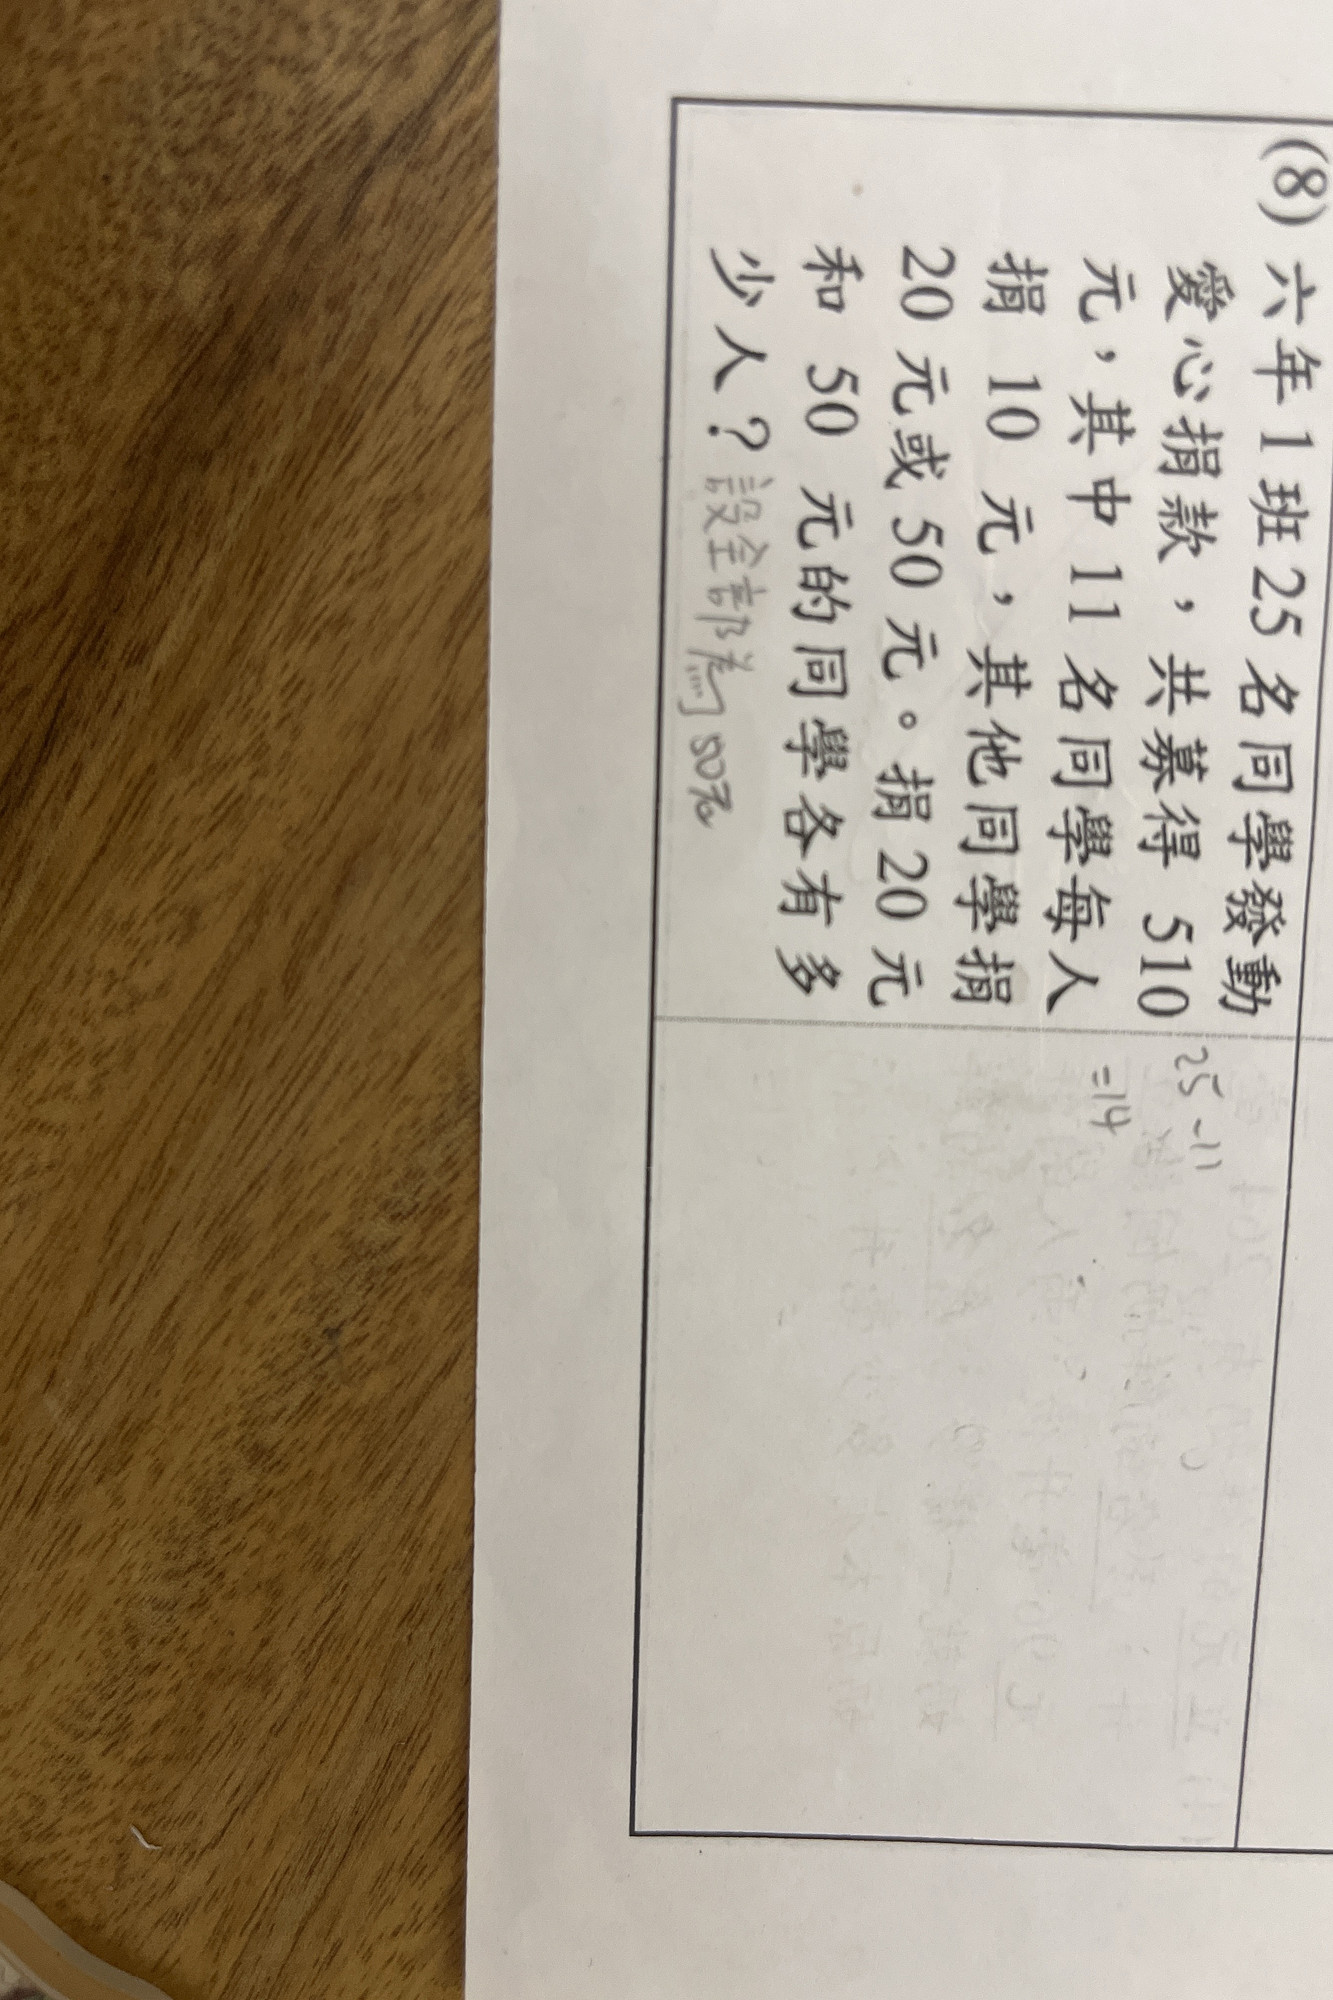 (8) 六年1班25名同學發動
愛心捐款，共募得 510
元，其中11名同學每人
捐 10 元，其他同學捐
20元或50元。捐20元
和 50 元的同學各有多
少人？設全部為50元
25-11
=14